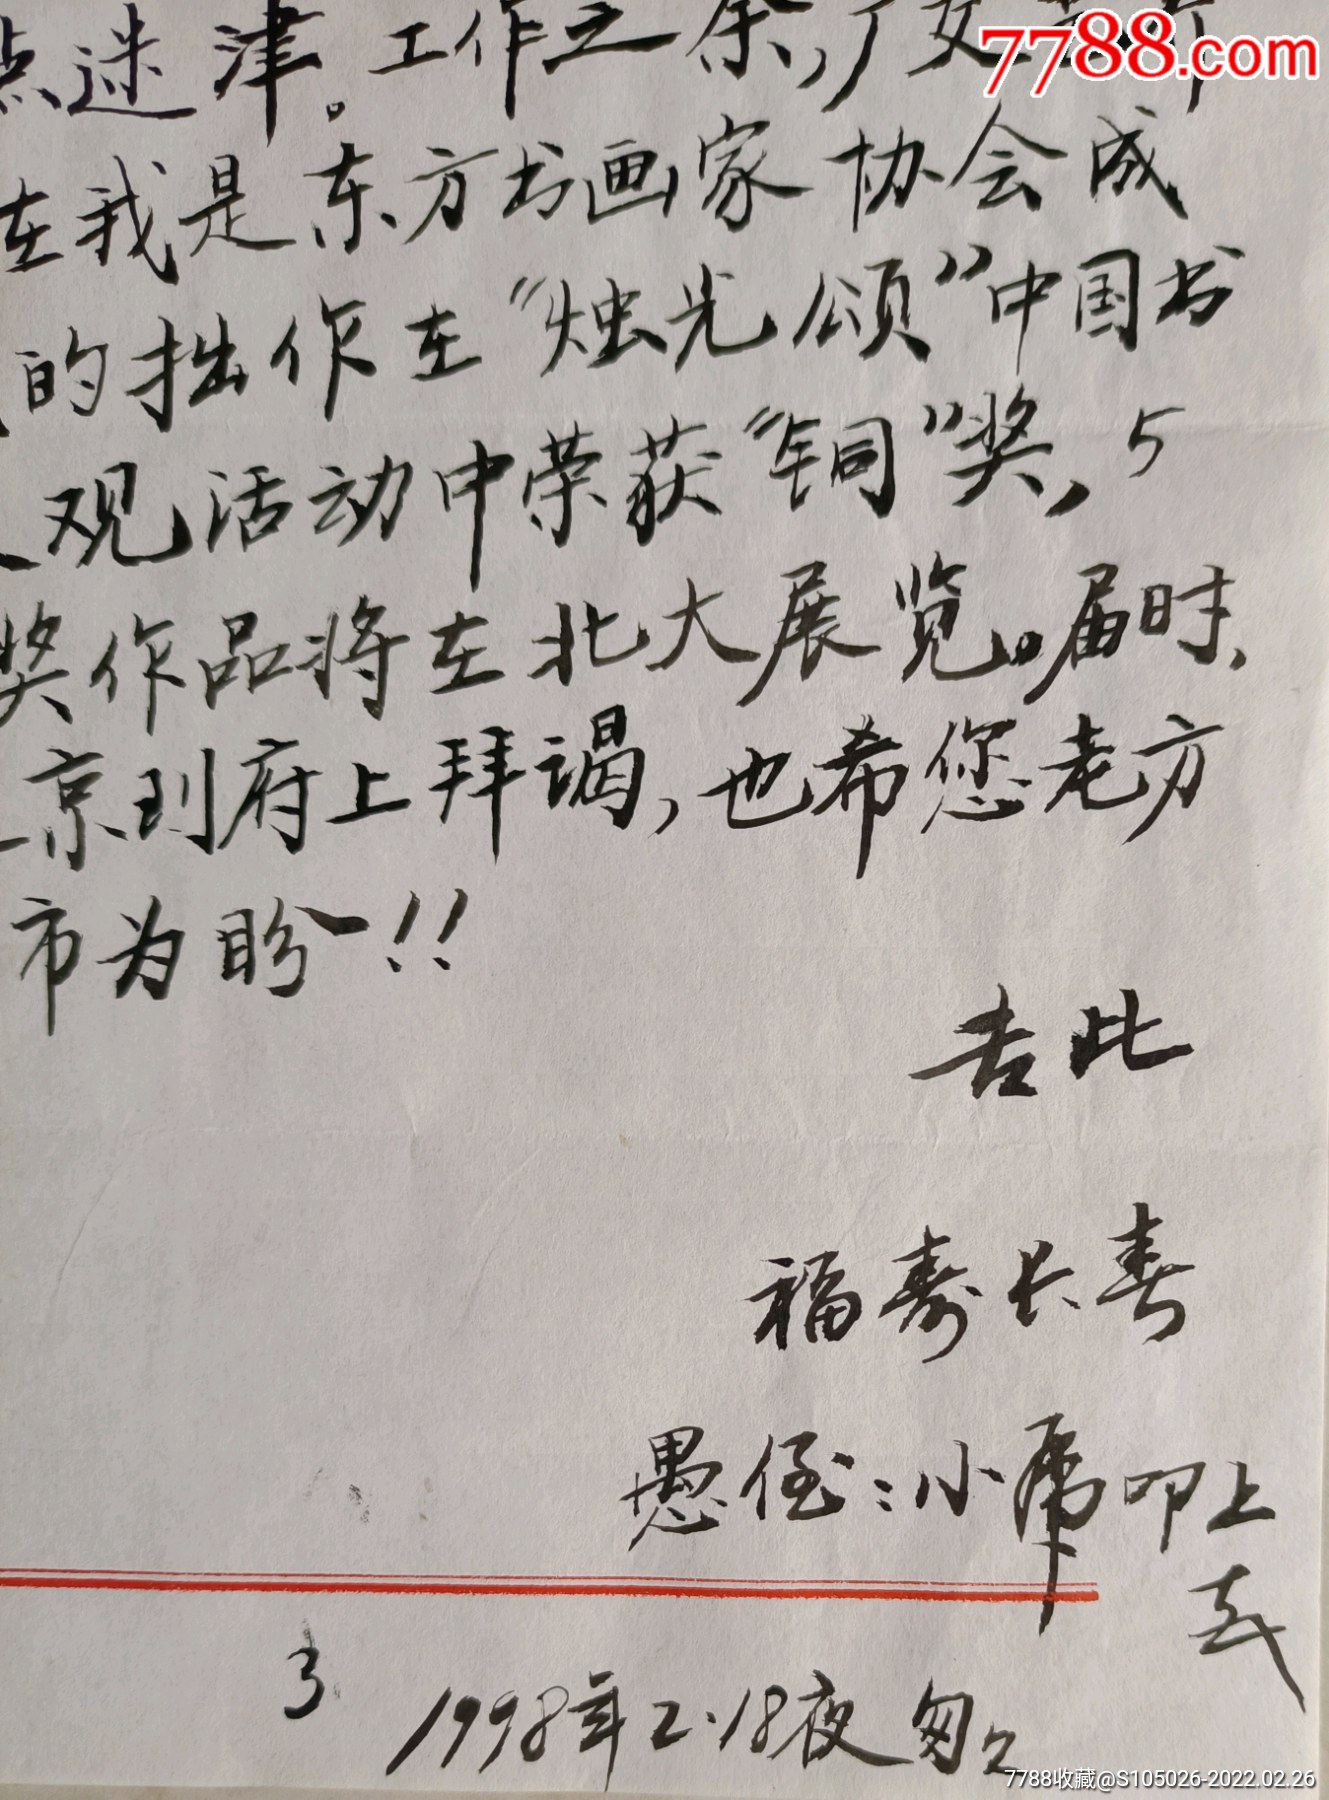 7788.com
点迷津。工作之余,广交
在我是东方书画家协会成
的拙作在“烛光颂”中国书
观活动中荣获“铜”奖,5
奖作品将在北大展览。届时、
京到府上拜谒,也希您老方
市为盼!!
专此
福寿长春
愚侄:小席叩上
3
1998年2.18夜匆匆
7788收藏@S105026-2022.02.26